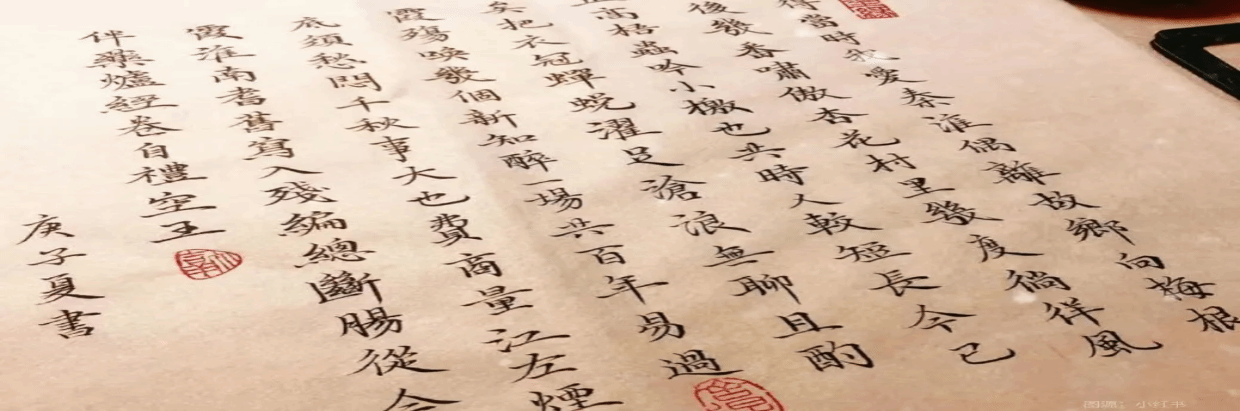 得當時我愛秦淮偶離故鄉向梅根
後幾番嘯傲杏花村里幾度徜徉風
止高梧蟲吟小檄也共時人較短長今已
矣把衣冠蟬蛻濯足滄浪無聊且酌
霞殤喚幾個新知醉一場共百年易過
底須愁悶千秋事大也費商量江左煙
霞淮南耆舊寫入殘編總斷腸從今
伴藥爐經卷自禮空王
庚子夏書
图源：小红书